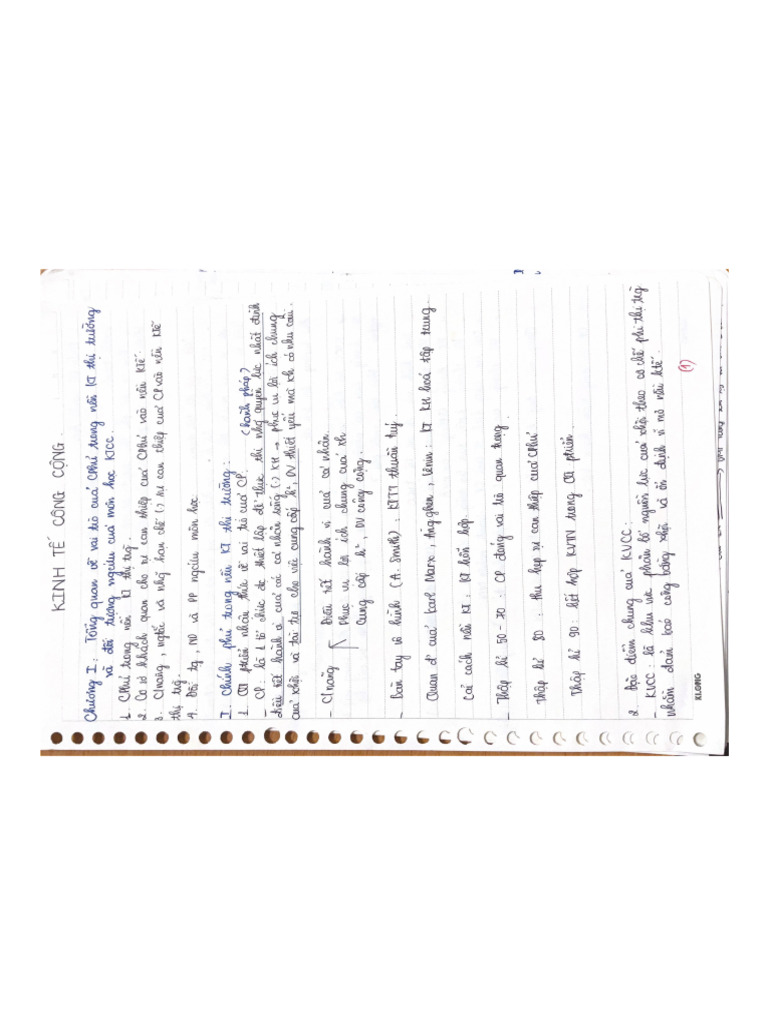 KINH TẾ CÔNG CỘNG.
Chương I: Tổng quan về vai trò của Cphủ trong nền KT thị trường
và đối tượng ngcứu của môn học KTCC.
1. Cphủ trong nền KT thị trg.
2. Cơ sở khách quan cho sự can thiệp của Cphủ vào nền Ktế.
3. C/năng, ngtắc và nhg hạn chế () sự can thiệp của CP vào nền Ktế
thị trg.
4. Đối tg, ND và PP ngcứu môn học.
I. Chính phủ trong nền KT thị trường:
1. Qt phiển nhận thức về vai trò của CP. (hành pháp)
- CP: là 1 tổ chức đc thiết lập để thực thi nhg quyền lực nhất định
điều tiết hành vi của các cá nhân sống () XH → phục vụ lợi ích chung
của xhội và tài trợ cho việc cung cấp h², DV thiết yếu mà xh có nhu cầu.
- C/năng Điều tiết hành vi của cá nhân.
Phục vụ lợi ích chung của xh
Cung cấp h², DV công cộng.
- Bàn tay vô hình (A. Smith): KTTT thuần túy.
Quan đ' của Karl Marx, Ăngghen, Lênin: KT KH hoá tập trung.
Cải cách nền KT: KT hỗn hợp.
- Thập kỉ 50-70: CP đóng vai trò quan trọng.
Thập kỉ 80: thu hẹp sự can thiệp của CPhủ
Thập kỉ 90: kết hợp KVTN trong Qt phiển.
2. Đặc điểm chung của KVCC:
- KVCC: là khu vực phân bổ nguồn lực của xhội theo cơ chế phi thị trg
nhằm đảm bảo công bằng xhội và ổn định vĩ mô nền ktế.
(1)
KLONG